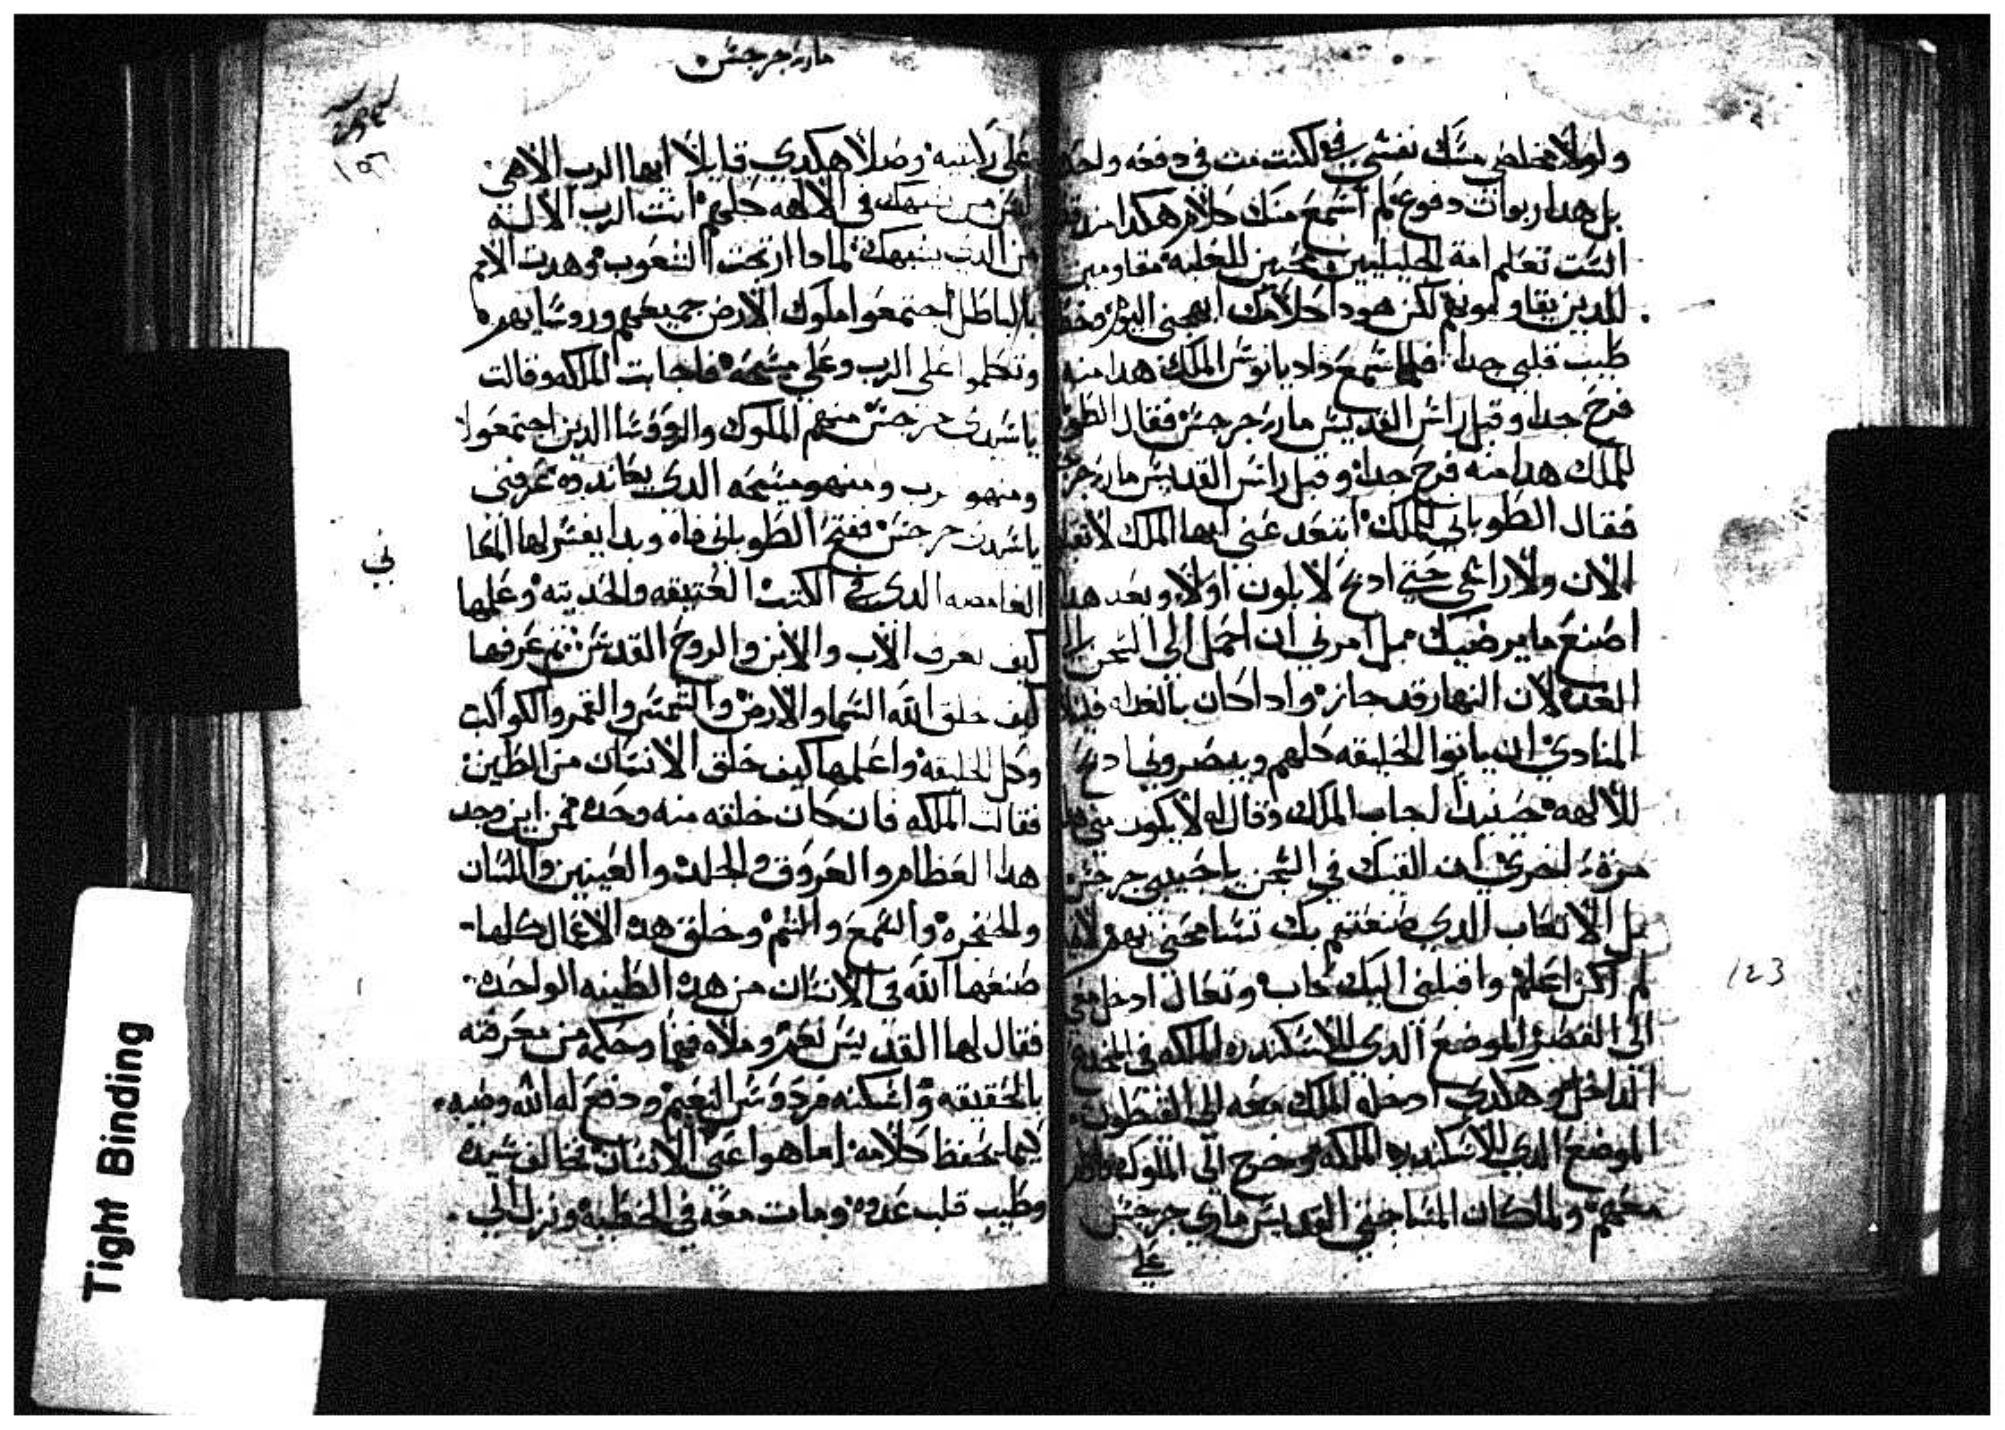 ولولا مخلصي مسك نفسي فولكنت مت في دفعه واحده
بل هدا ربوات دفوع لم اسمع منك كلام هكدا من قط
الست تعلم امة الجليليين محبين للغلبه مقاومين
للدين يقاومونهم لكن هودا كلامك ابهجني اليوم وخف
طيب قلبي جدا فلما سمع داديانوس الملك هدا منه
فرح جدا وقبل راس القديس ماري جرجس فقال الطوب
للملك هدا منه فرح جدا وقبل راس القديس ماري جرجس
فقال الطوباني للملك ابتعد عني ايها الملك لا تفعل
الان ولا راسي حتي ادبح لابلون اولا وبعد هدا
اصنع ما يرضيك بل امرني ان احمل الي السجن الي
الغد لان النهار قد جاز وادا كان بالغداه فليناد
المنادي ان ياتوا الخليقه كلهم ويبصروني ادبح
للالهه حينيد اجاب الملك وقال له لا يكون مني هدا
مرة اخري ان القيك في السجن يا حبيبي جرجس
بل الاتعاب الدي صنعتهم بك تسامحني بهم لانه
لم اكن اعلم واقبلني اليك كاب وتعال ادخل معي
الي القصر الموضع الدي للاسكندره الملكه في المخدع
الداخل وهكدي ادخله الملك معه الي القيطون
الموضع الدي للاسكندره الملكه وخرج الي الملوك
معهم ولما كان المسا جتي القديس ماري جرجس
علي
123
ماري جرجس
١٥٢
علي ركبتيه وصلا هكدي قايلا ايها الرب الاهي
ليس من يشبهك في الالهه كلهم انت الرب الاله
من الدي يشبهك لمادا ارتجت الشعوب وهدت الامم
بالباطل اجتمعوا ملوك الارض جميعهم وروسايهم
وتكلموا علي الرب وعلي مسيحه فاجابت الملكه وقالت
ياسيدي جرجس منهم الملوك والروسا الدين اجتمعوا
ومنهو الرب ومنهو مسيحه الدي يعاندوه عرفني
ياسيدي جرجس ففتح الطوباني فاه وبدا يفسر لها المعا
ني
الغامضه الدي في الكتب العتيقه والحديثه وعلمها
كيف تعرف الاب والابن والروح القدس ثم عرفها
كيف خلق الله السما والارض والشمس والقمر والكواكب
وكل الخليقه واعلمها كيف خلق الانسان من الطين
فقالت الملكه فان كان خلقه منه وحده فمن اين وجد
هدا العظام والعروق والجلد والعينين واللسان
والحنجره والسمع والشم وخلق هده الاعمال كلها
صنعها الله في الانسان من هده الطينه الواحده
فقال لها القديس نعم وملاه فهما وحكمه من معرفته
بالحقيقه واسكنه فردوس النعيم ودفع له الله وصيه
كيما يحفظ كلامه اما هو اعني الانسان خالف سيده
وطيب قلب عدوه ومات معه في الخطيه ونزل الي
Tight Binding